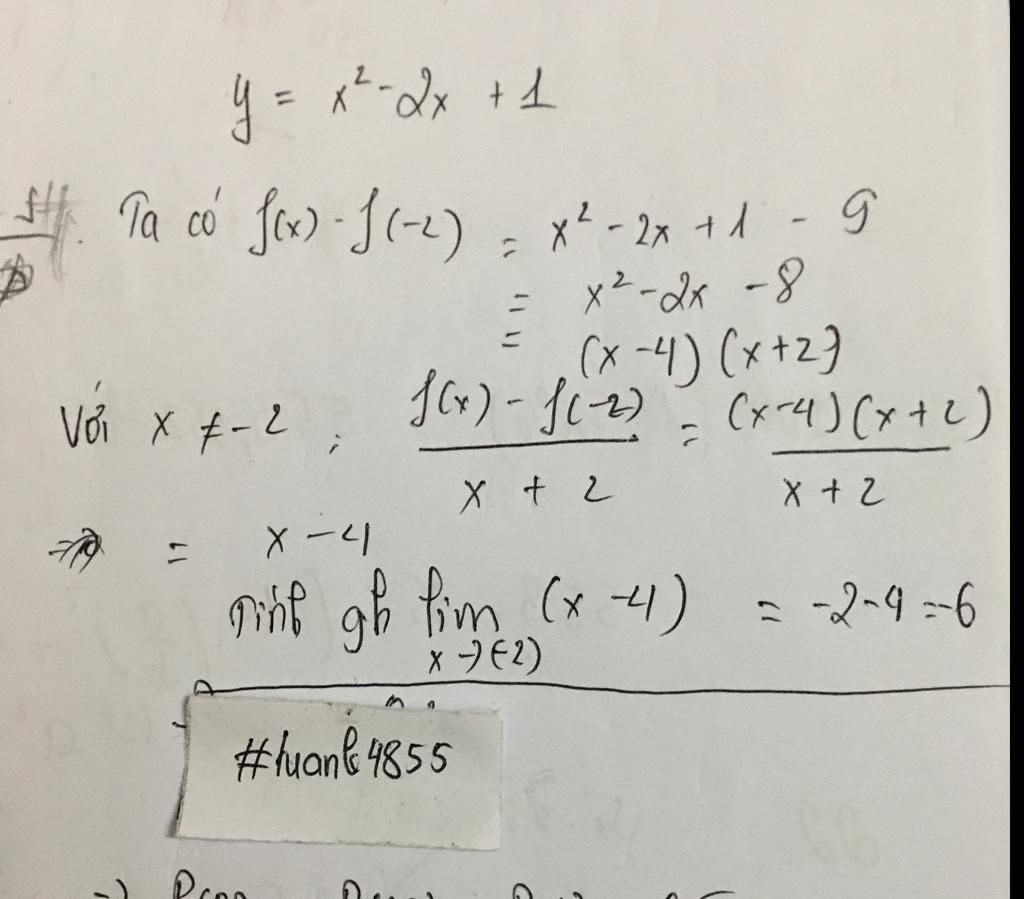 y = x² - 2x + 1
Ta có f(x) - f(-2) = x² - 2x + 1 - 9
= x² - 2x - 8
= (x - 4) (x + 2)
Với x ≠ -2 ; f(x) - f(-2) / x + 2 = (x - 4) (x + 2) / x + 2
= x - 4
Tính gh lim x → (-2) (x - 4) = -2 - 4 = -6